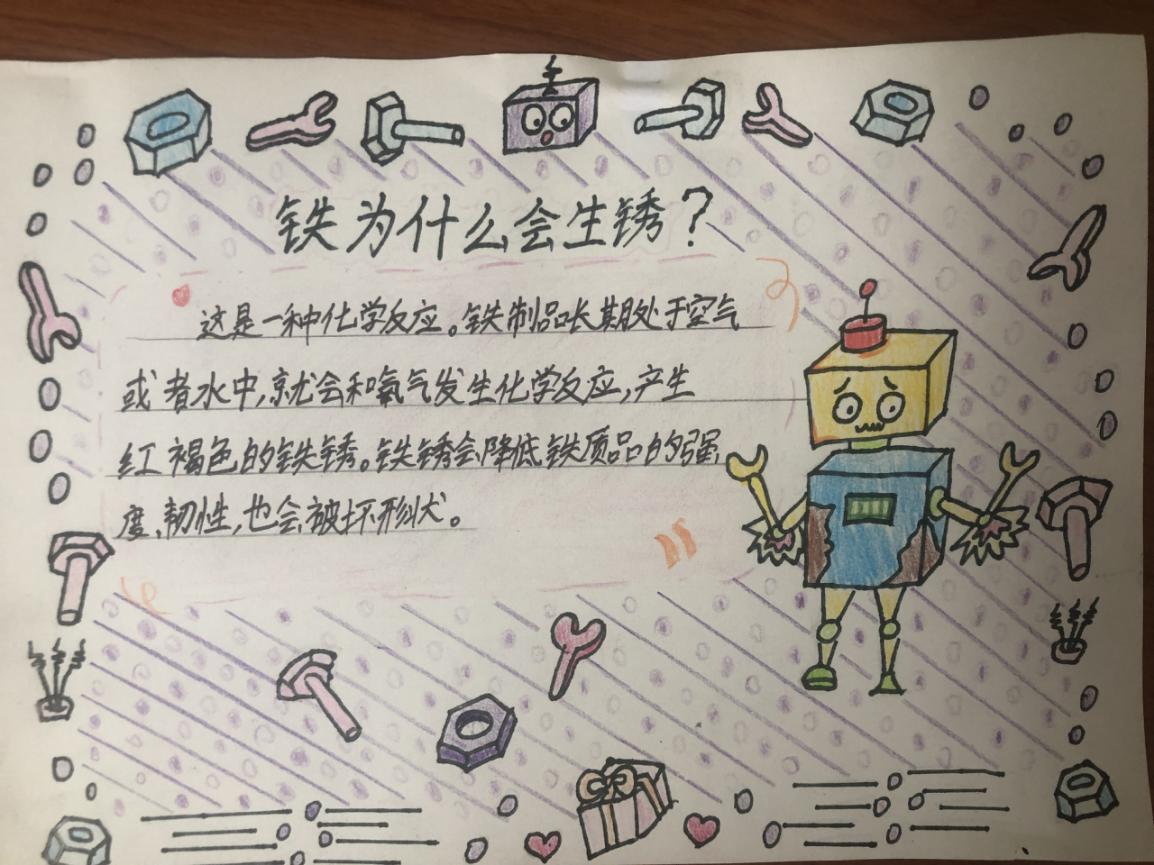 铁为什么会生锈？
这是一种化学反应。铁制品长期处于空气
或者水中,就会和氧气发生化学反应,产生
红褐色的铁锈。铁锈会降低铁质品的强
度、韧性,也会被坏形状。